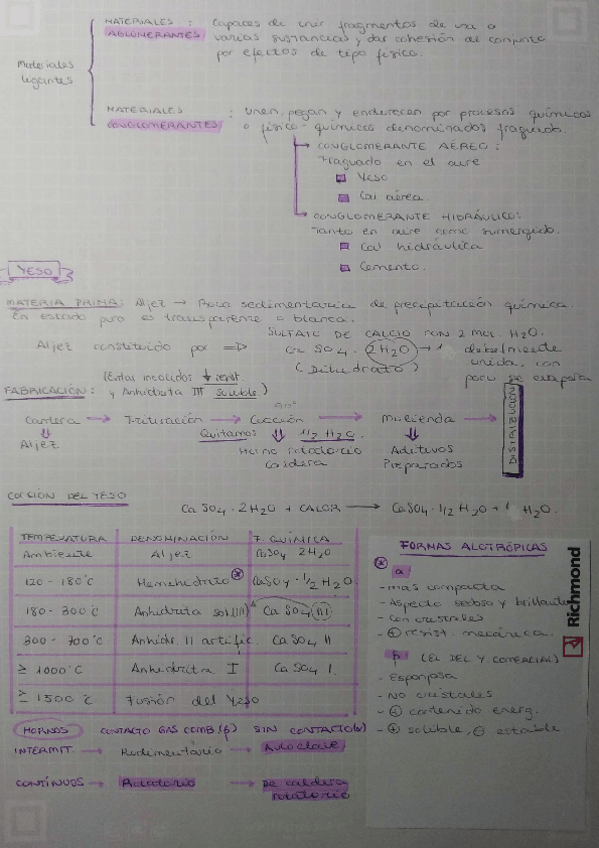 Materiales ligantes
MATERIALES AGLOMERANTES : Capaces de unir fragmentos de una o
varias sustancias y dar cohesión al conjunto
por efectos de tipo físico.
MATERIALES CONGLOMERANTES : unen, pegan y endurecen por procesos químicos
o físico-químicos denominados fraguado.
CONGLOMERANTE AÉREO :
Fraguado en el aire
Yeso
Cal aérea.
CONGLOMERANTE HIDRÁULICO:
Tanto en aire como sumergido.
Cal hidráulica
Cemento.
YESO
MATERIA PRIMA: Aljez → Roca sedimentaria de precipitación química.
En estado puro es transparente o blanca.
SULFATE DE CALCIO CON 2 MOL. H2O.
Aljez constituido por ⇒ Ca SO4 · 2H2O → 1 débilmente
(Dihidrato) unida, con
poca se evapora
(Evitar incocidos ↓ resist.
FABRICACIÓN: y Anhidrita III soluble.)
Cantera → Trituración → Cocción → Molienda → DISTRIBUCIÓN
Aljez
Quitamos 1/2 H2O.
Horno rotatorio
Caldera
Aditivos
Preparados
COCCIÓN DEL YESO
Ca SO4 · 2H2O + CALOR → CaSO4 · 1/2 H2O + H2O.
TEMPERATURA DENOMINACIÓN F. QUÍMICA
Ambiente Aljez CaSO4 2H2O
120 - 180°C Hemihidrato * CaSO4 · 1/2 H2O
180 - 300°C Anhidrita sol III Ca SO4 III
300 - 700°C Anhidr. II artific. Ca SO4 II
≥ 1000°C Anhidrita I Ca SO4 I.
≥ 1500°C Fusión del Yeso
HORNOS CONTACTO GAS COMB (β) SIN CONTACTO (α)
INTERMIT. → Rudimentario → Autoclave
CONTÍNUOS → Rotatorio → De caldera
rotatorio
FORMAS ALOTRÓPICAS
* α
- más compacta
- Aspecto sedoso y brillante
- Con cristales
- ⊕ resist. mecánica.
β (EL DEL Y. COMERCIAL)
- Esponjosa
- No cristales
- ⊕ contenido energ.
- ⊕ soluble, ⊖ estable
Richmond